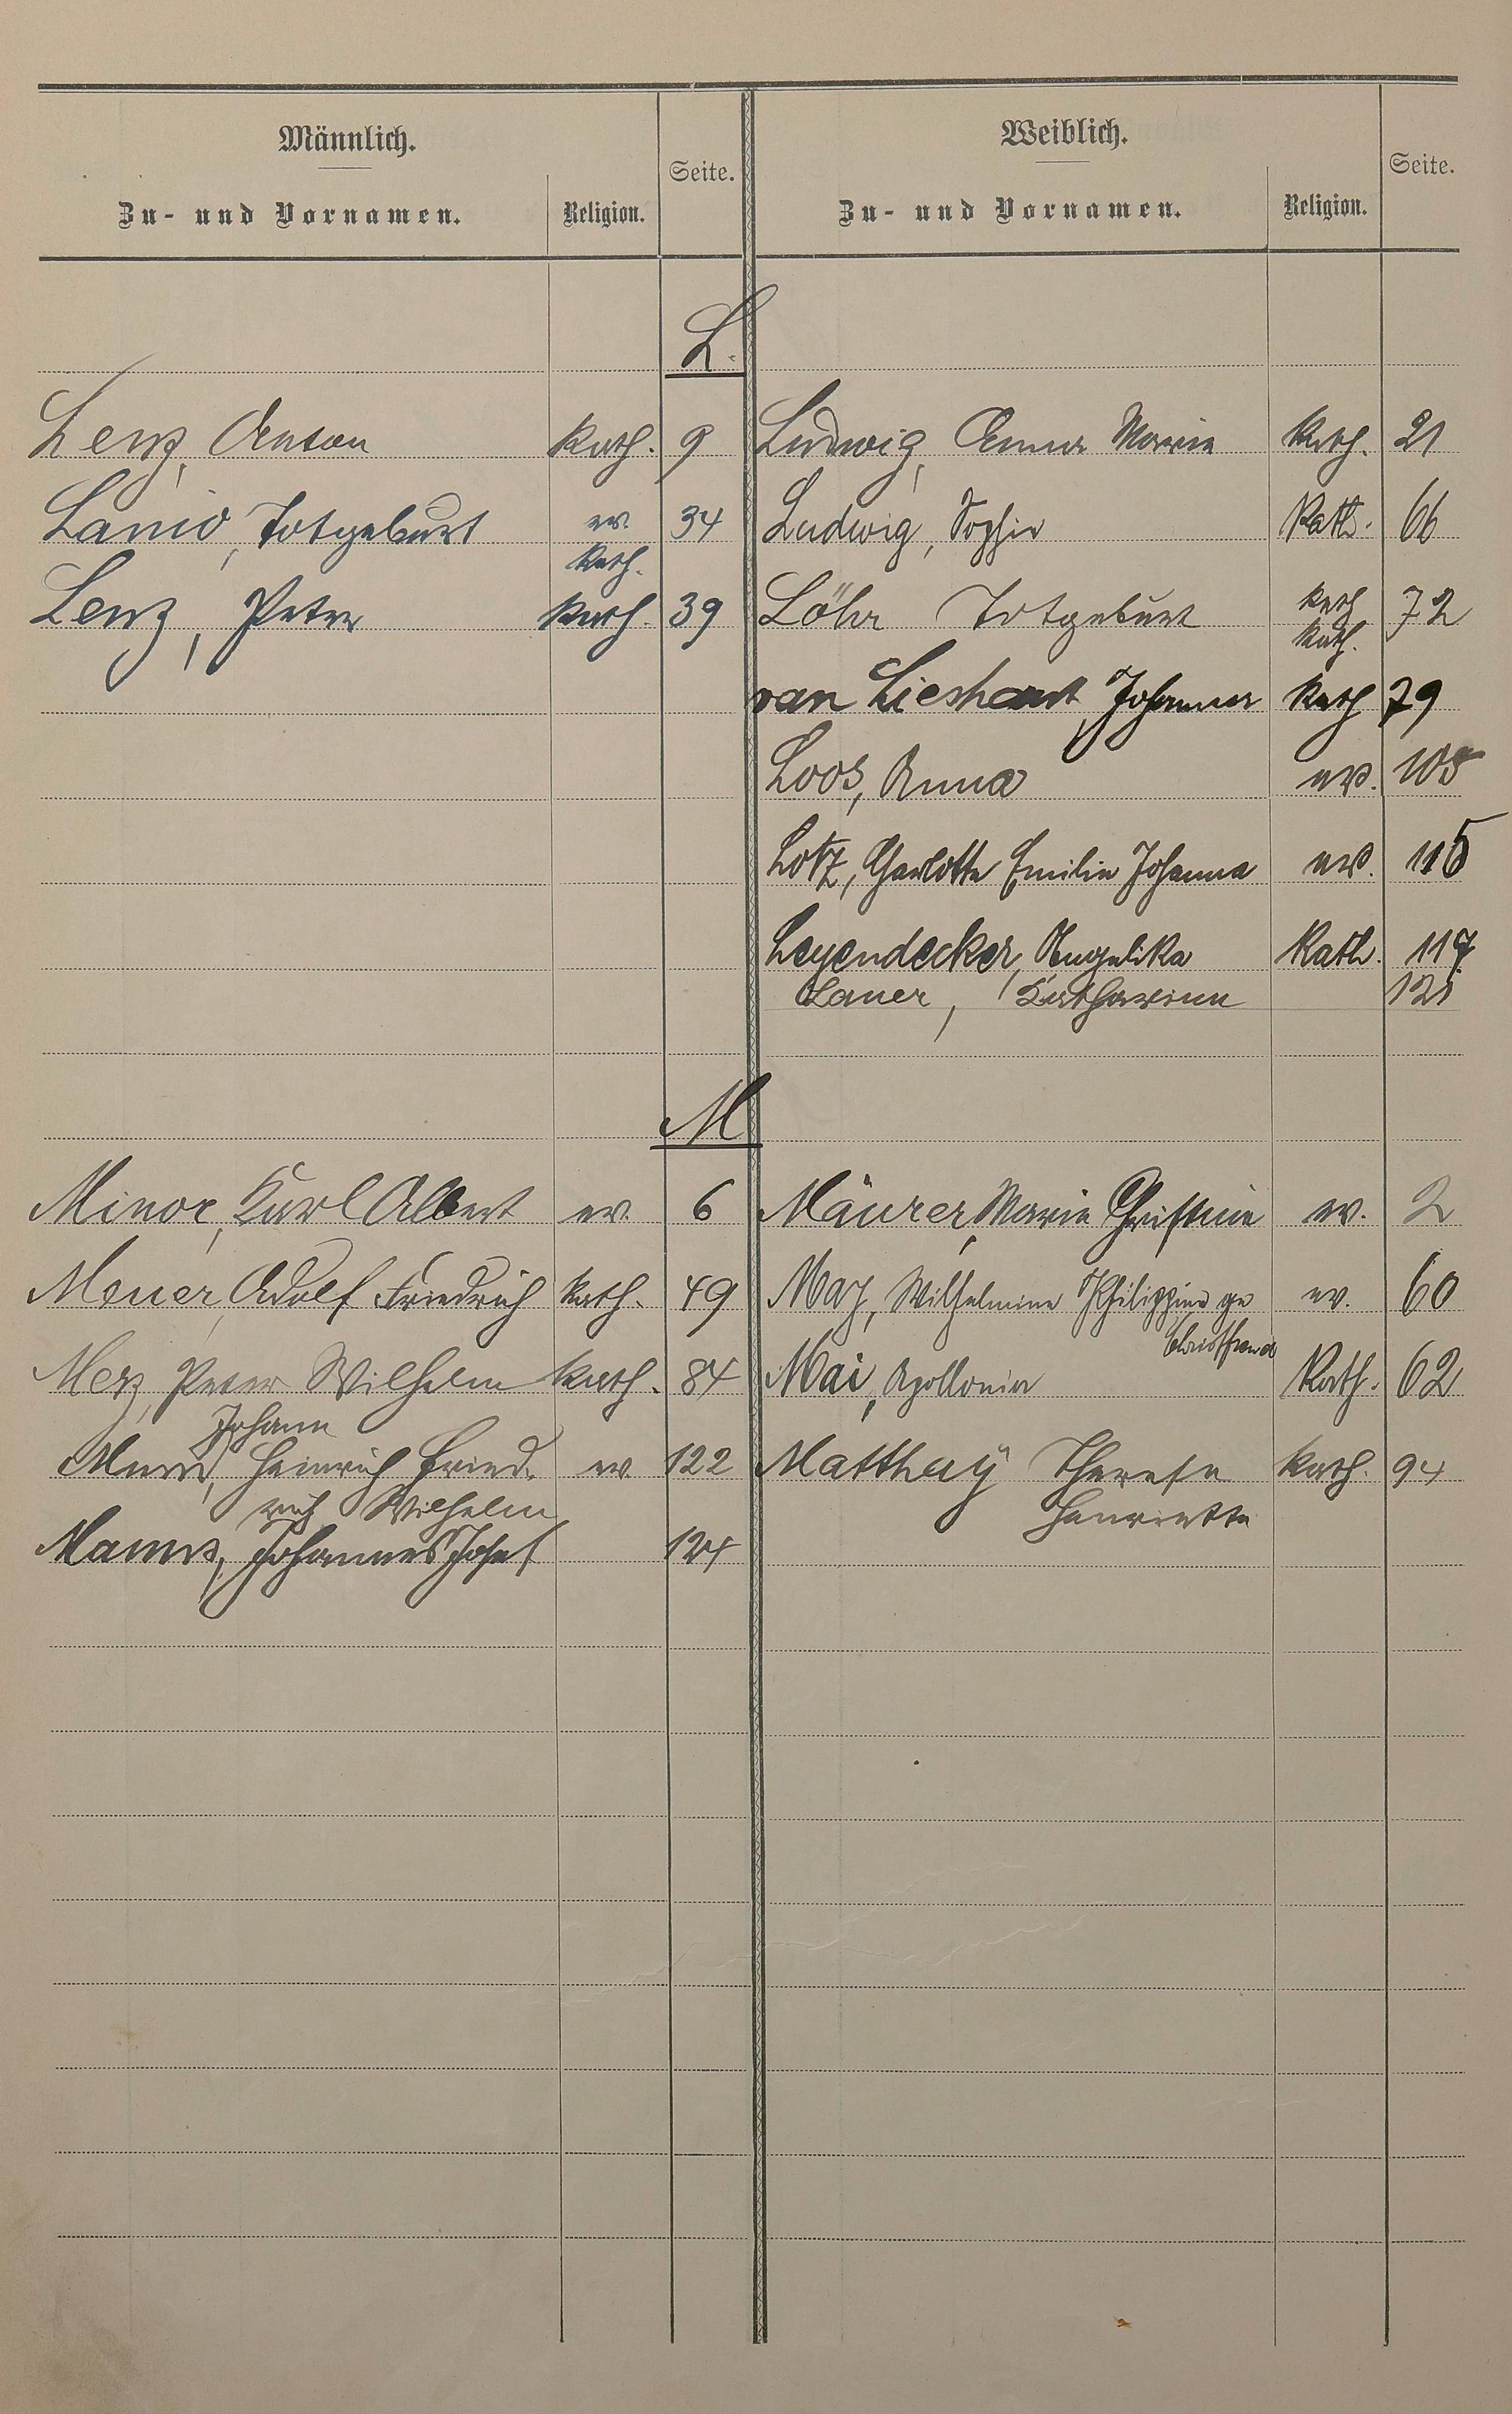 Männlich.
Zu- und Vornamen.
Religion.
Seite.
Weiblich.
Zu- und Vornamen.
Religion.
Seite.
L.
Lenz, Anton kath. 9
Lanio, Totgeburt ev. kath. 34
Lenz, Peter kath. 39
Ludwig, Anna Maria kath. 21
Ludwig, Sophie Kath. 66
Löhr Totgeburt kath kath. 72
van Lieshout, Johanna kath 79
Loos, Anna ev. 105
Lotz, Charlotte Emilie Johanna ev. 115
Leyendecker, Angelika Kath. 117
Laner, Katharina 121
M
Minor, Karl Albert ev. 6
Meuer, Adolf Friedrich kath. 49
Merz, Peter Wilhelm kath. 84
Johann
Heinrich Fried- ev 122
rich Wilhelm
Manns, Johannes Josef 124
Mäurer, Maria Christine ev. 2
May, Wilhelmine Philippine ge ev. 60
Christfreund
Mai, Apollonia Kath. 62
Matthaÿ Therese kath. 94
Henriette